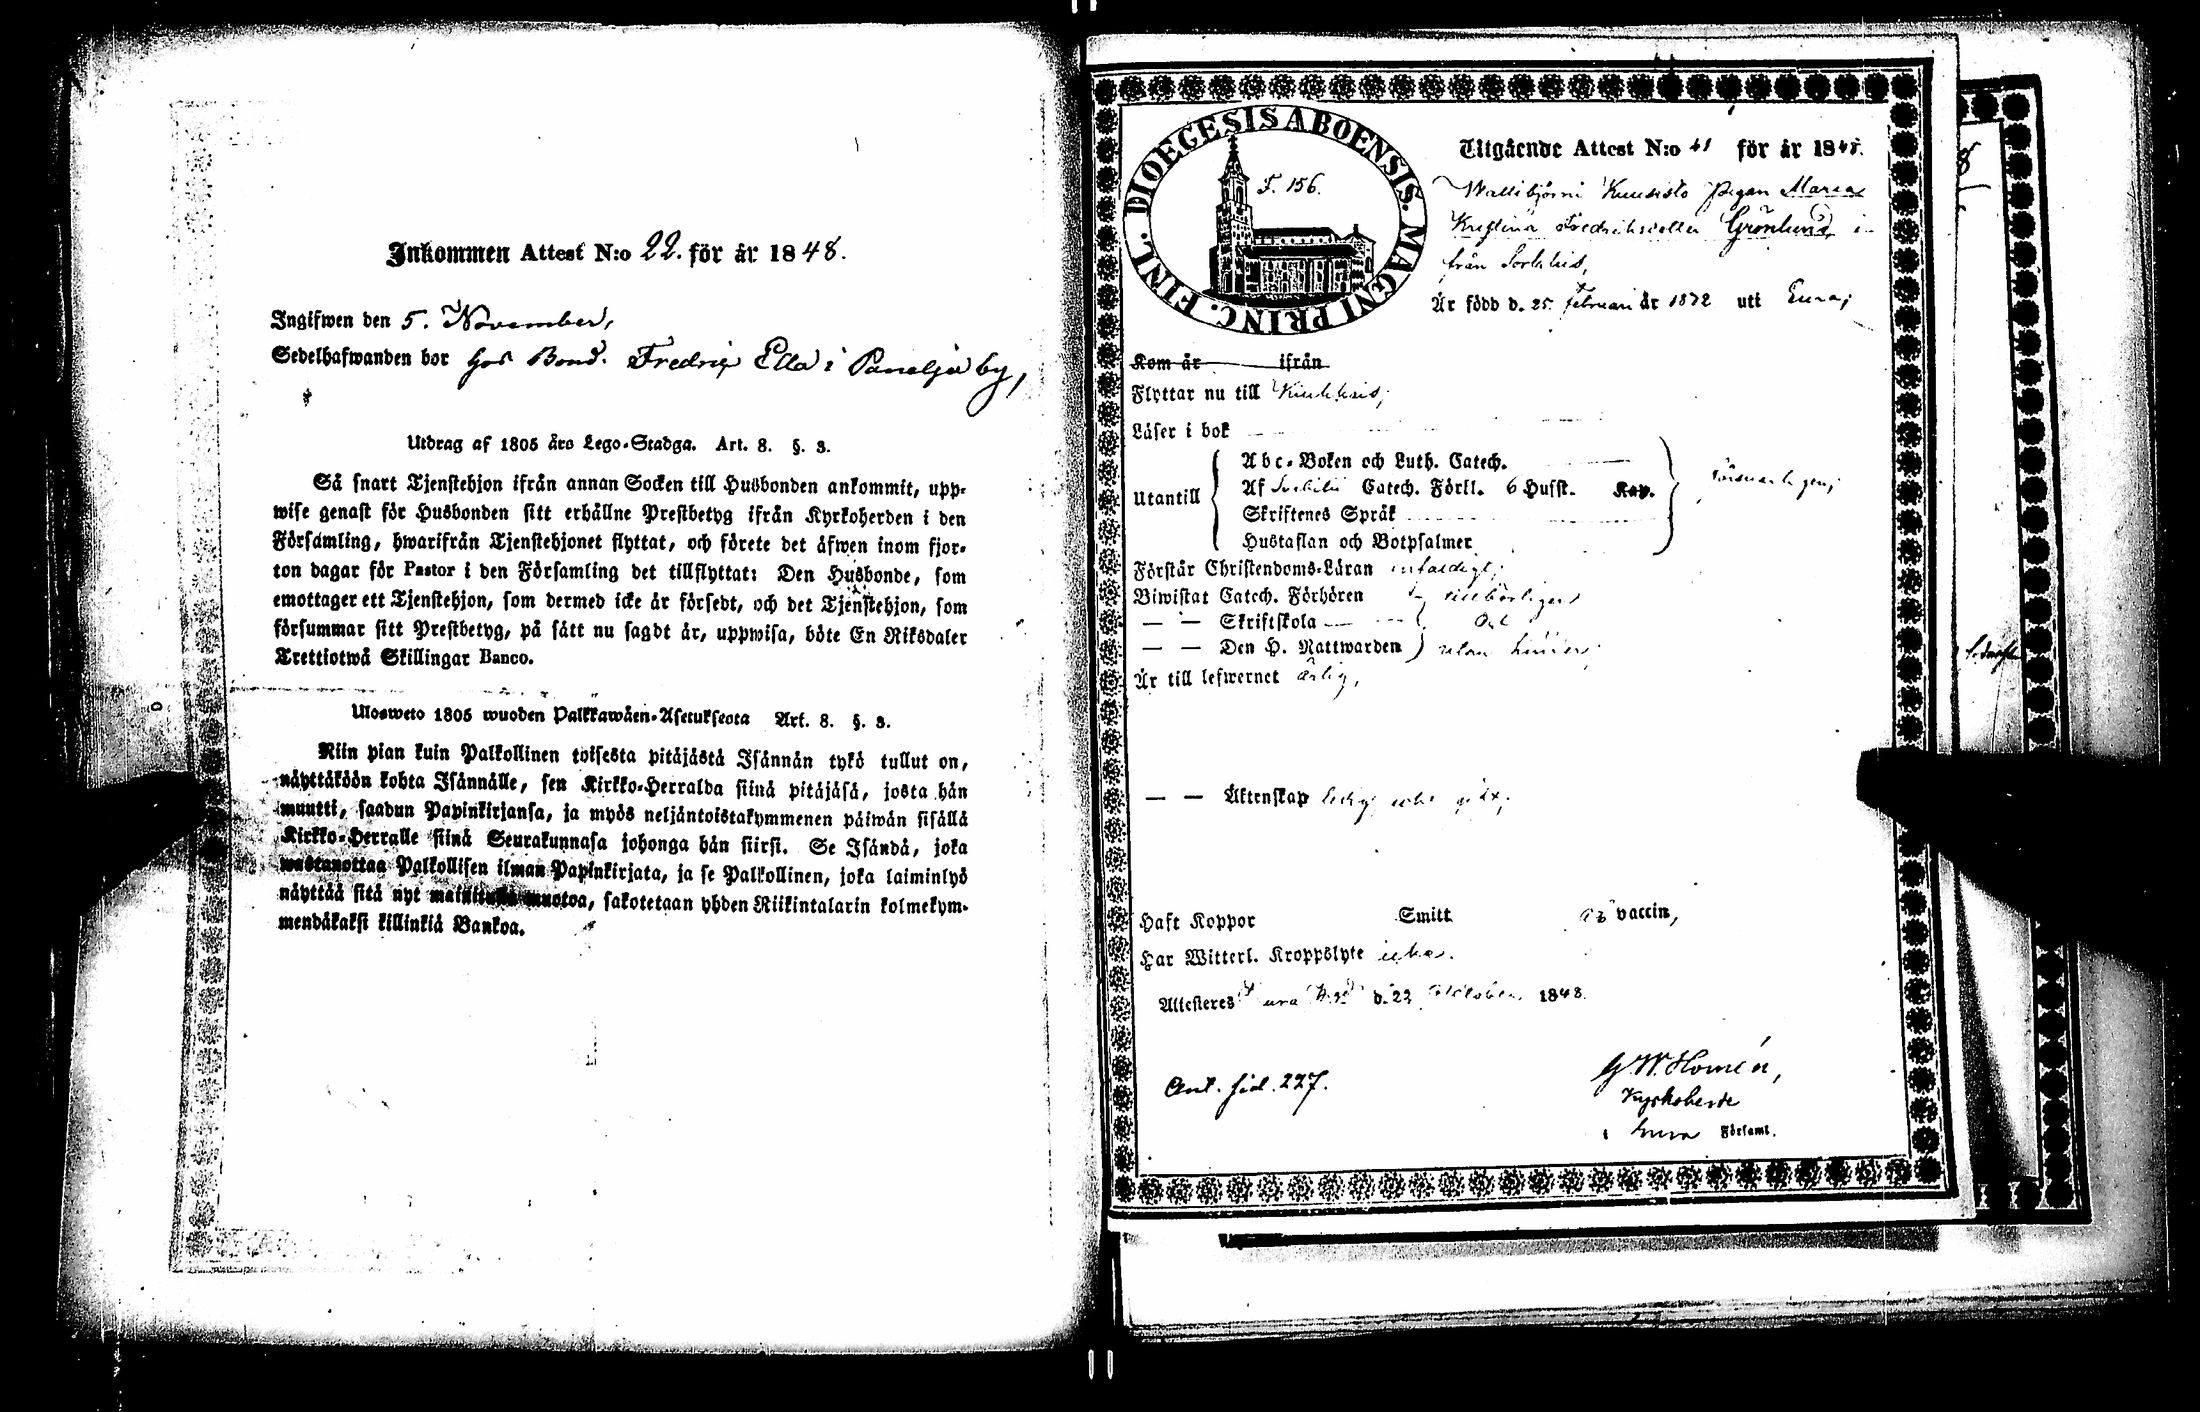 Inkommen Attest N:o 22. för år 1848.
Ingifwen den 5. November,
Sedelhafwanden bor hos Bond. Fredric Ella i Panelja by,
Utdrag af 1805 års Lego-Stadga. Art. 8. §. 3.
Så snart Tjenstehjon ifrån annan Socken till Husbonden ankommit, upp-
wise genast för Husbonden sitt erhållne Prestbetyg ifrån Kyrkoherden i den
Församling, hwarifrån Tjenstehjonet flyttat, och förete det äfwen inom fjor-
ton dagar för Pastor i den Församling det tillflyttat: Den Husbonde, som
emottager ett Tjenstehjon, som dermed icke är försedt, och det Tjenstehjon, som
försummar sitt Prestbetyg, på sätt nu sagdt är, uppwisa, böte En Riksdaler
Trettiotwå Skillingar Banco.
Ulosweto 1805 wuoden Palkkawäen-Asetuksesta Art. 8. §. 3.
Niin pian kuin Palkollinen toisesta pitäjästä Isännän tykö tullut on,
näyttäköön kohta Isännälle, sen Kirkko-Herralda siinä pitäjäsä, josta hän
muutti, saadun Papinkirjansa, ja myös neljäntoistakymmenen päiwän sisällä
Kirkko-Herralle siinä Seurakunnasa johonga hän siirsi. Se Isändä, joka
wastanottaa Palkollisen ilman Papinkirjata, ja se Palkollinen, joka laiminlyö
näyttää sitä nyt mainitulla muotoa, sakotetaan yhden Riikintalarin kolmekym-
mendäkaksi killinkiä Bankoa.
DIOEGESIS ABOENSIS. MAGNI PRINC. FINL.
F. 156.
Utgående Attest N:o 41 för år 1848.
Kuusisto pigan Maria
Fredriksdotter Grönlund i
från Sorkkis,
Är född d. 25 Februari år 1832 uti Eura;
Kom år ifrån
Flyttar nu till Kiukkais;
Läser i bok
Utantill
Abc-Boken och Luth. Catech.
Af Catech. Förkl. 6 Husst. Kap.
Skriftenes Språk
Hustaflan och Botpsalmer
försvarligen;
Förstår Christendoms-Läran enfaldigt;
Biwistat Catech. Förhören
— — Skriftskola
— — Den H. Nattwarden utan hinder;
Är till lefwernet ärlig,
— — Äktenskap ledig
Haft Koppor Smitt vaccin,
Har Witterl. Kroppslyte icke.
Attesteres Eura d. 23 Oktober 1848.
Ant. sid. 227.
G. W. Homén,
Kyrkoherde
i Eura Församl.